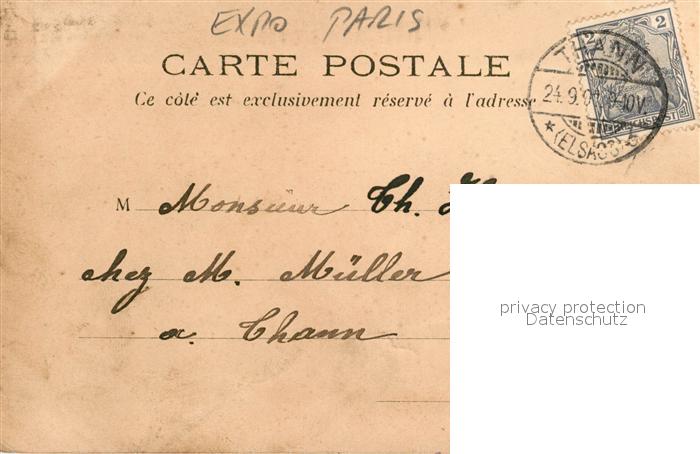 EXPO PARIS
2
CARTE POSTALE
THANN
24.9.
9-10V
* (ELSASS)
Ce côté est exclusivement réservé à l'adresse
M Monsieur Th.
chez M. Müller
privacy protection
Datenschutz
a. Thann